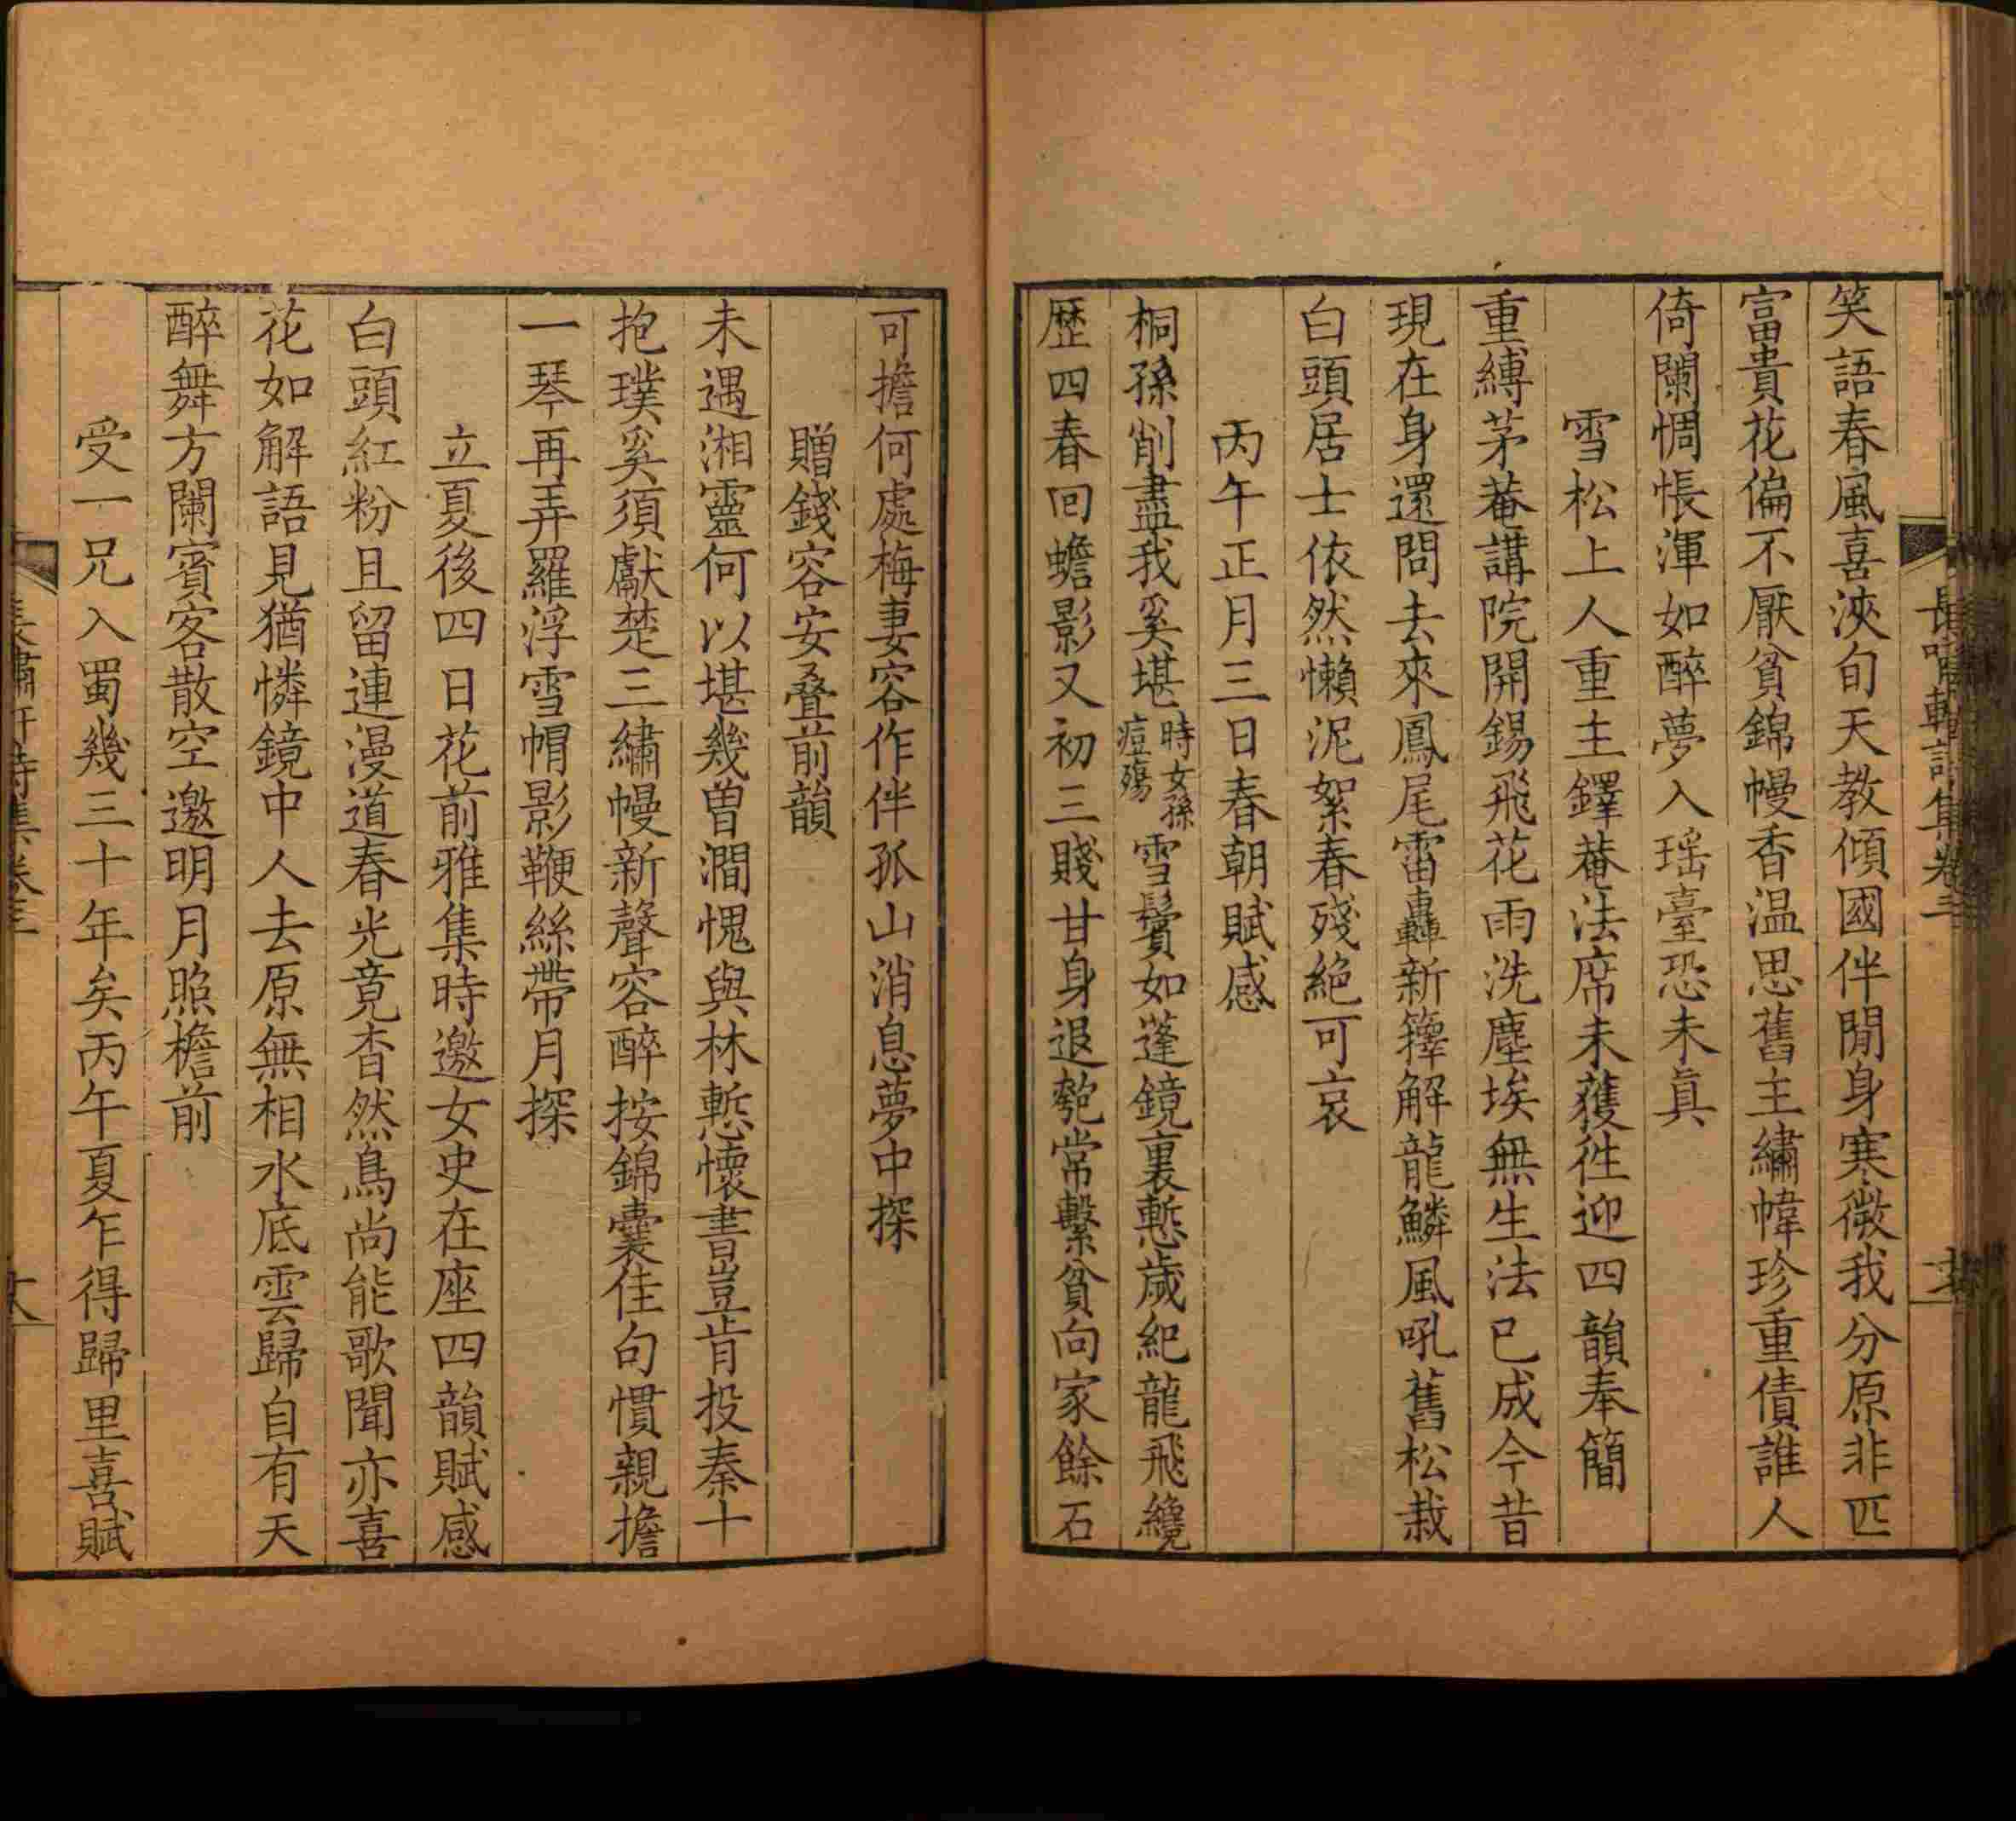 笑語春風喜浹旬天教傾國伴閒身寒微我分原非匹
富貴花偏不厭貧錦幔香温思舊主繡幃珍重債誰人
倚闌惆悵渾如醉夢入瑶臺恐未真
雪松上人重主鐸菴法席未獲徃迎四韻奉簡
重縛茅菴講院開錫飛花雨洗塵埃無生法已成今昔
現在身還問去來鳳尾雷轟新籜解龍鱗風吼舊松栽
白頭居士依然懶泥絮春殘絶可哀
丙午正月三日春朝賦感
桐孫削盡我奚堪時女孫痘殤雪鬢如蓬鏡裏慙歲紀龍飛纔
歴四春回蟾影又初三賤甘身退匏常繫貧向家餘石
可擔何處梅妻容作伴孤山消息夢中探
贈錢容安叠前韻
未遇湘靈何以堪幾曽澗愧與林慙懷書豈肯投秦十
抱璞奚須獻楚三繡幔新聲容醉按錦囊佳句慣親擔
一琴再弄羅浮雪帽影鞭絲帶月探
立夏後四日花前雅集時邀女史在座四韻賦感
白頭紅粉且留連漫道春光竟杳然鳥尚能歌聞亦喜
花如解語見猶憐鏡中人去原無相水底雲歸自有天
醉舞方闌賓客散空邀明月照檐前
受一兄入蜀幾三十年矣丙午夏乍得歸里喜賦